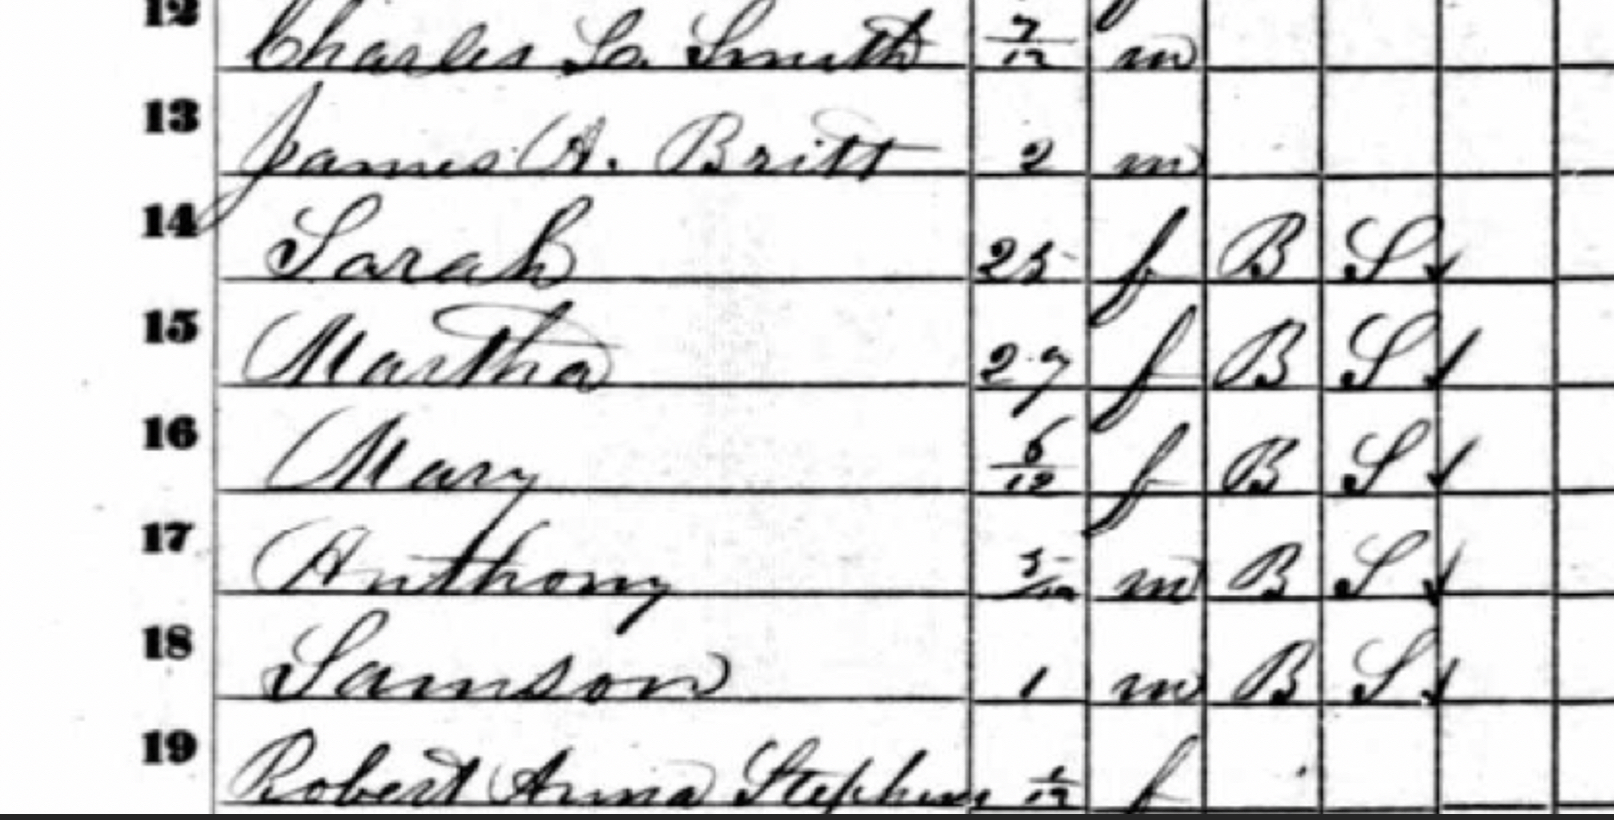 12 Charles L. Smith 7/12 m
13 James A. Britt 2 m
14 Sarah 25 f B S
15 Martha 27 f B S
16 Mary 6/12 f B S
17 Anthony 5/12 m B S
18 Samson 1 m B S
19 Robert Anna Stephens 1/12 f